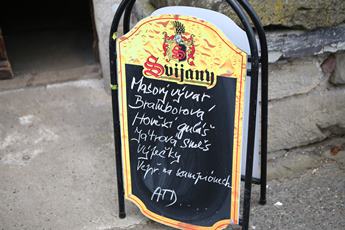 Svijany
Masový vývar
Bramborová
Hovězí guláš
Játrová směs
Výpečky
Vepř. na kampionech
ATD....